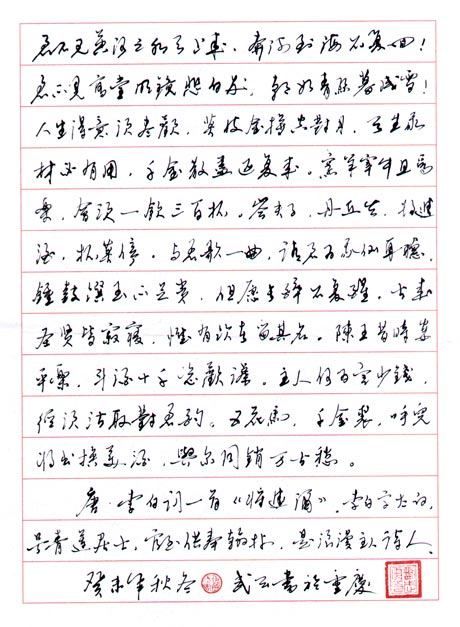 君不见黄河之水天上来，奔流到海不复回！
君不见高堂明镜悲白发，朝如青絲暮成雪！
人生得意须尽歡，莫使金樽空對月，天生我
材必有用，千金散盡还复来。烹羊宰牛且为
樂，會须一飲三百杯。岑夫子，丹丘生，将進
酒，杯莫停。与君歌一曲，请君为我倾耳聽，
鍾鼓馔玉不足贵，但愿长醉不复醒，古来
圣贤皆寂寞，惟有饮者留其名。陳王昔時宴
平樂，斗酒十千恣歡謔。主人何为言少錢，
徑须沽取對君酌。五花馬，千金裘，呼兒
将出换美酒，與尔同销万古愁。
唐·李白词一首《将進酒》，李白字太白，
号青莲居士，官至供奉翰林，是浪漫主义诗人。
癸未年秋冬 武云書於重慶